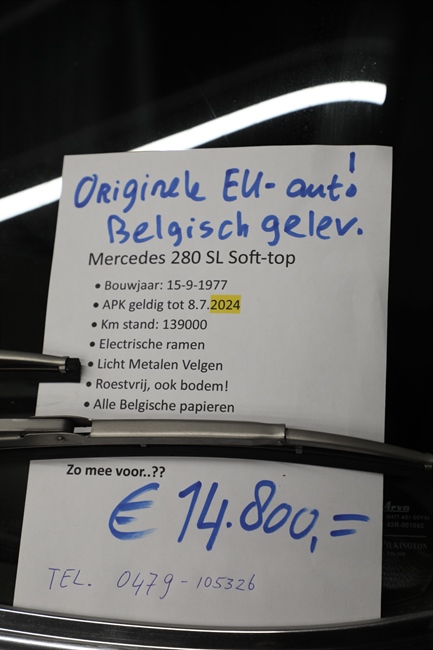 Originele EU-auto!
Belgisch gelev.
Mercedes 280 SL Soft-top
• Bouwjaar: 15-9-1977
• APK geldig tot 8.7.2024
• Km stand: 139000
• Electrische ramen
• Licht Metalen Velgen
• Roestvrij, ook bodem!
• Alle Belgische papieren
Zo mee voor..??
€ 14.800,=
TEL. 0479-105326